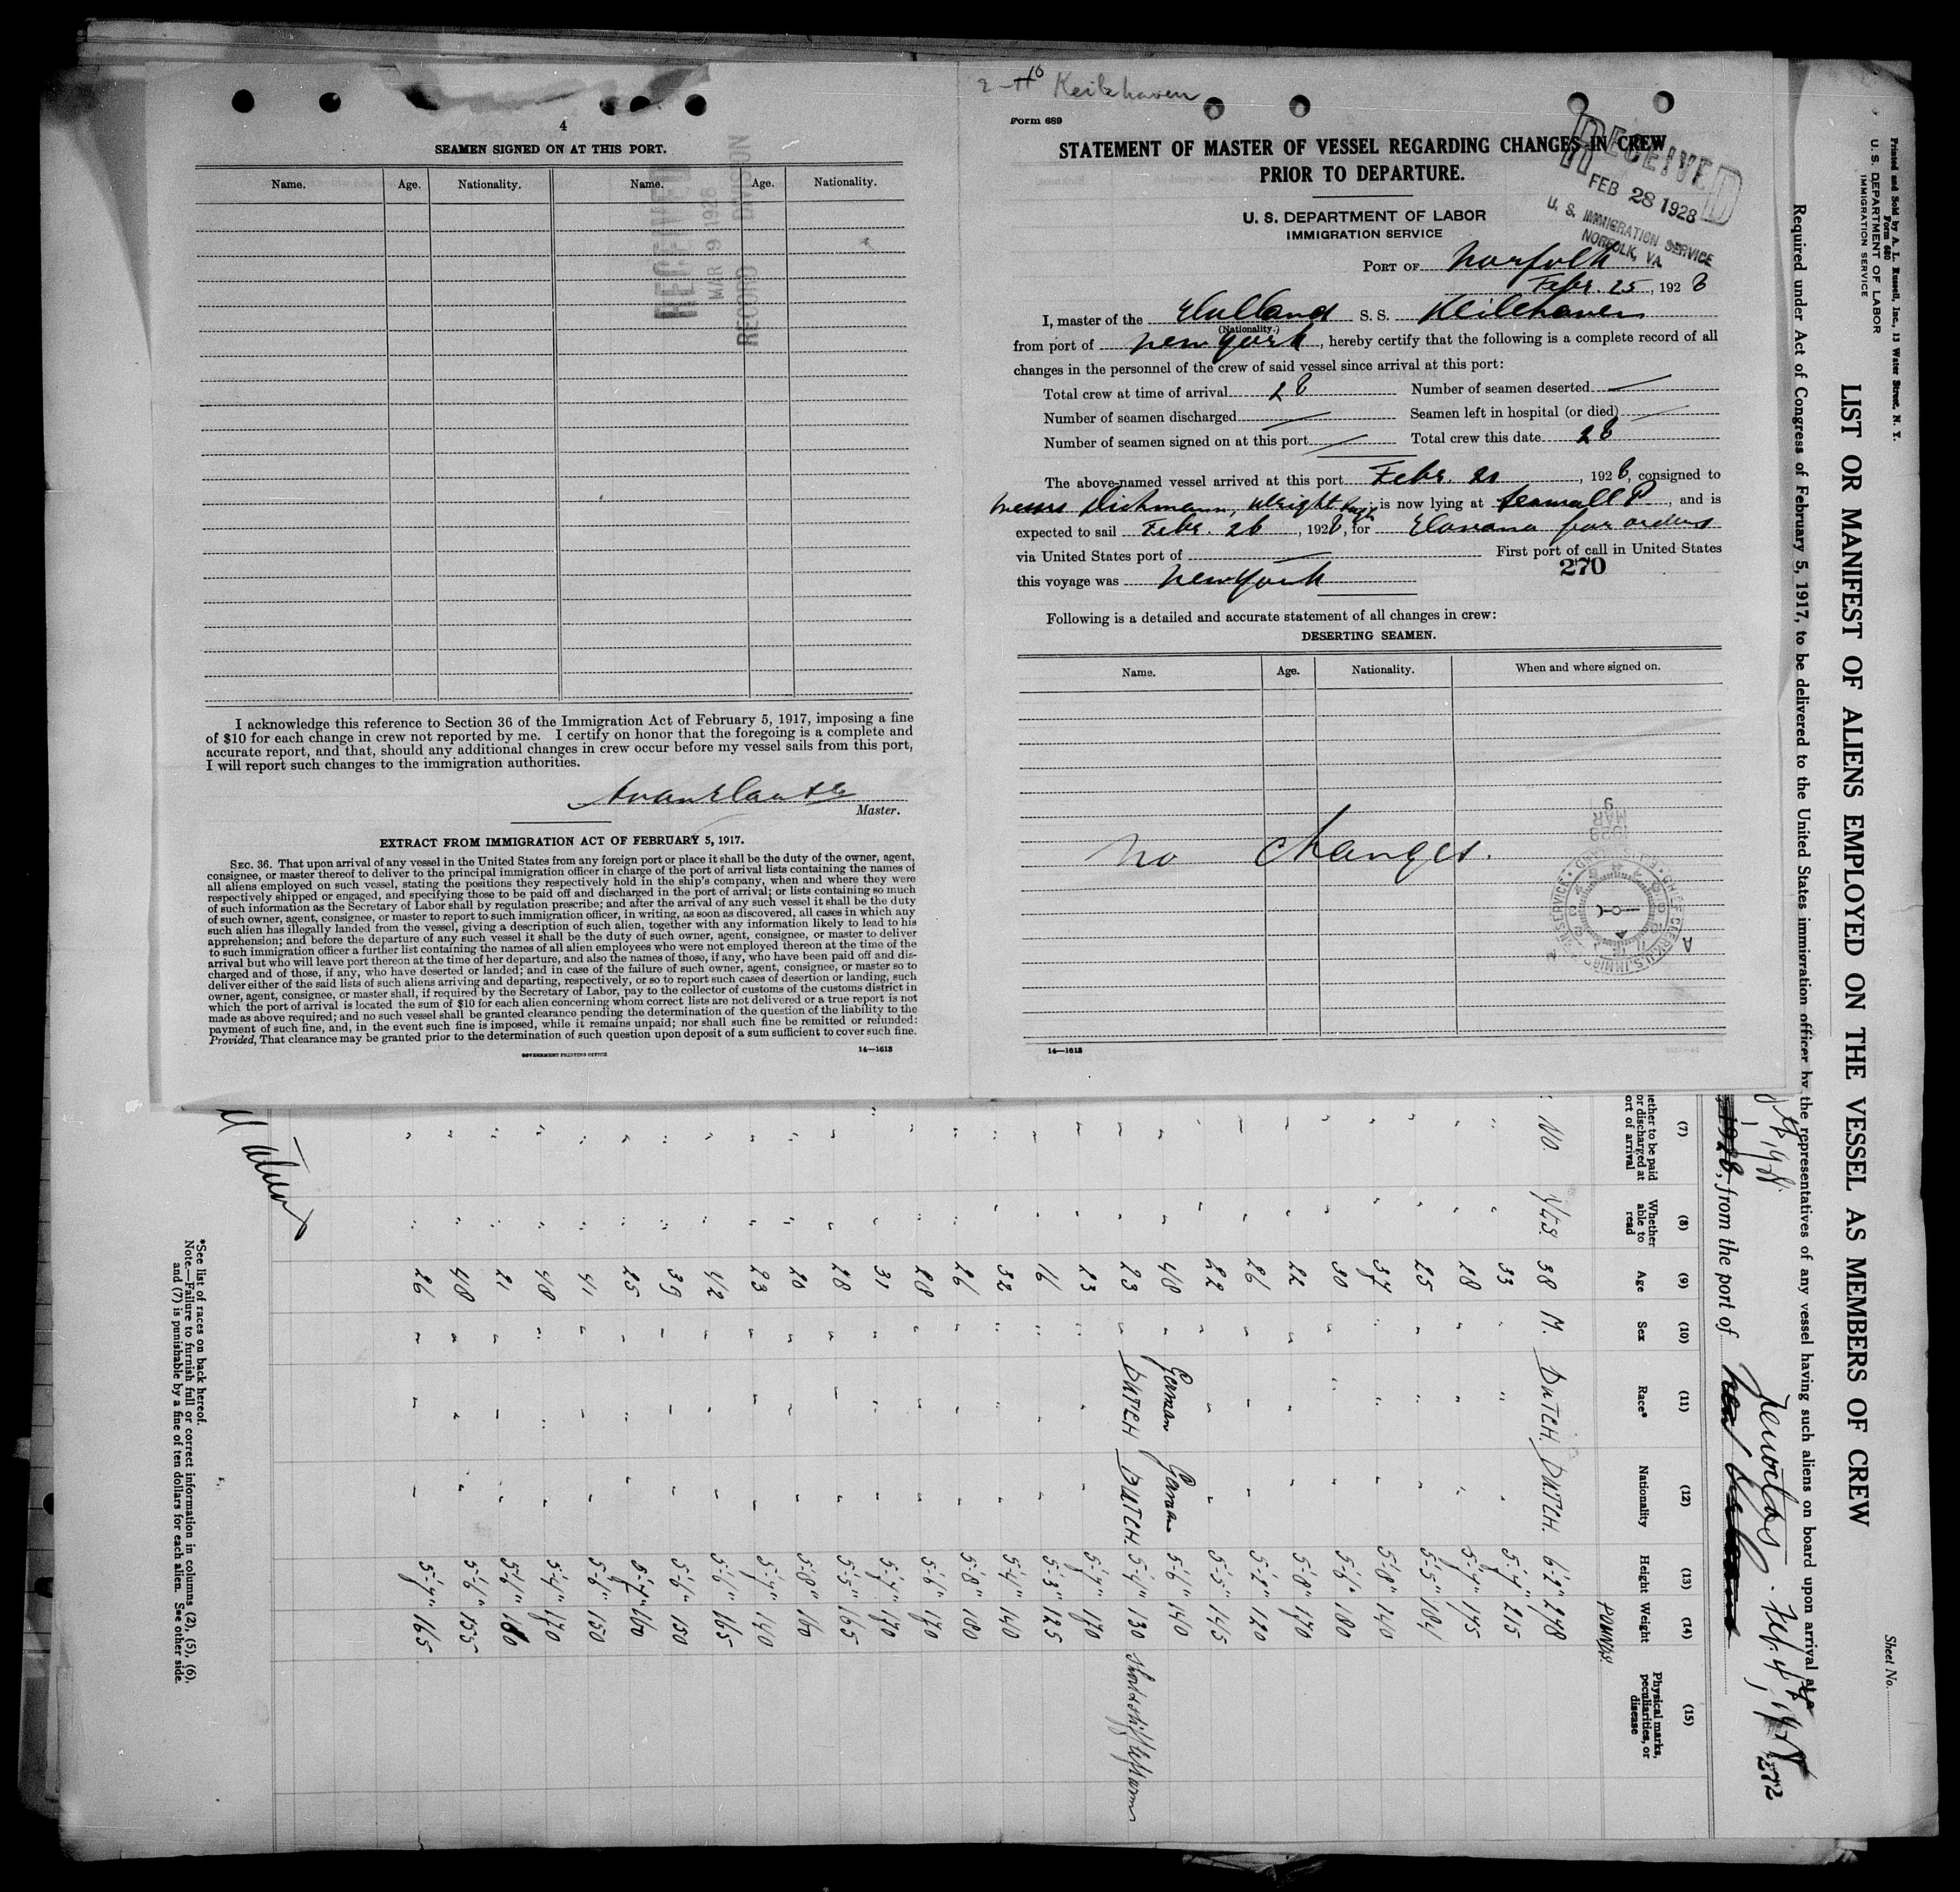 4
SEAMEN SIGNED ON AT THIS PORT.
Name. Age. Nationality. Name. Age. Nationality.
RECEIVED
MAR 9 1928
RECORD DIVISION
I acknowledge this reference to Section 36 of the Immigration Act of February 5, 1917, imposing a fine
of $10 for each change in crew not reported by me. I certify on honor that the foregoing is a complete and
accurate report, and that, should any additional changes in crew occur before my vessel sails from this port,
I will report such changes to the immigration authorities.
Master.
EXTRACT FROM IMMIGRATION ACT OF FEBRUARY 5, 1917.
SEC. 36. That upon arrival of any vessel in the United States from any foreign port or place it shall be the duty of the owner, agent,
consignee, or master thereof to deliver to the principal immigration officer in charge of the port of arrival lists containing the names of
all aliens employed on such vessel, stating the positions they respectively hold in the ship's company, when and where they were
respectively shipped or engaged, and specifying those to be paid off and discharged in the port of arrival; or lists containing so much
of such information as the Secretary of Labor shall by regulation prescribe; and after the arrival of any such vessel it shall be the duty
of such owner, agent, consignee, or master to report to such immigration officer, in writing, as soon as discovered, all cases in which any
such alien has illegally landed from the vessel, giving a description of such alien, together with any information likely to lead to his
apprehension; and before the departure of any such vessel it shall be the duty of such owner, agent, consignee, or master to deliver
to such immigration officer a further list containing the names of all alien employees who were not employed thereon at the time of the
arrival but who will leave port thereon at the time of her departure, and also the names of those, if any, who have been paid off and dis-
charged and of those, if any, who have deserted or landed; and in case of the failure of such owner, agent, consignee, or master so to
deliver either of the said lists of such aliens arriving and departing, respectively, or so to report such cases of desertion or landing, such
owner, agent, consignee, or master shall, if required by the Secretary of Labor, pay to the collector of customs of the customs district in
which the port of arrival is located the sum of $10 for each alien concerning whom correct lists are not delivered or a true report is not
made as above required; and no such vessel shall be granted clearance pending the determination of the question of the liability to the
payment of such fine, and, in the event such fine is imposed, while it remains unpaid; nor shall such fine be remitted or refunded:
Provided, That clearance may be granted prior to the determination of such question upon deposit of a sum sufficient to cover such fine.
GOVERNMENT PRINTING OFFICE 14—1613
Keilehaven
Form 689
STATEMENT OF MASTER OF VESSEL REGARDING CHANGES IN CREW
PRIOR TO DEPARTURE.
RECEIVED
FEB 28 1928
U. S. IMMIGRATION SERVICE
NORFOLK, VA.
U. S. DEPARTMENT OF LABOR
IMMIGRATION SERVICE
PORT OF Norfolk
Febr. 25, 1928
I, master of the Holland S. S. Keilehaven
(Nationality.)
from port of New York, hereby certify that the following is a complete record of all
changes in the personnel of the crew of said vessel since arrival at this port:
Total crew at time of arrival 28 Number of seamen deserted —
Number of seamen discharged — Seamen left in hospital (or died) —
Number of seamen signed on at this port — Total crew this date 28
The above-named vessel arrived at this port Febr. 21, 1928, consigned to
Messrs Dichmann, Wright is now lying at Seawall P., and is
expected to sail Febr. 26, 1928, for Havana for orders
via United States port of — First port of call in United States
this voyage was New York
270
Following is a detailed and accurate statement of all changes in crew:
DESERTING SEAMEN.
Name. Age. Nationality. When and where signed on.
No changes.
1928
MAR
9
14—1613
Printed and Sold by A. L. Russell, Inc., 13 Water Street, N. Y.
Form 680
U. S. DEPARTMENT OF LABOR
IMMIGRATION SERVICE
Sheet No.
LIST OR MANIFEST OF ALIENS EMPLOYED ON THE VESSEL AS MEMBERS OF CREW
Required under Act of Congress of February 5, 1917, to be delivered to the United States immigration officer by the representatives of any vessel having such aliens on board upon arrival at a
1928, from the port of
272
(7) (8) (9) (10) (11) (12) (13) (14) (15)
ether to be paid or discharged at ort of arrival
Whether able to read
Age
Sex
Race*
Nationality
Height
Weight
Physical marks, peculiarities, or disease
POUNDS.
No. YES. 38 M. DUTCH. DUTCH. 6-2" 278
" " 33 " " " 5-7" 215
" " 28 " " " 5-7" 175
" " 25 " " " 5-5" 184
" " 37 " " " 5-8" 140
" " 30 " " " 5-6" 180
" " 22 " " " 5-8" 170
" " 26 " " " 5-2" 120
" " 22 " " " 5-5" 145
" " 48 " German German 5-6" 140
" " 23 " DUTCH DUTCH 5-4" 130 Short & stiff left arm
" " 23 " " " 5-7" 170
" " 16 " " " 5-3" 125
" " 32 " " " 5-4" 140
" " 26 " " " 5-8" 180
" " 28 " " " 5-6" 170
" " 31 " " " 5-7" 170
" " 28 " " " 5-5" 165
" " 20 " " " 5-8" 160
" " 23 " " " 5-7" 140
" " 42 " " " 5-6" 165
" " 39 " " " 5-6" 150
" " 25 " " " 5-7" 160
" " 41 " " " 5-6" 150
" " 48 " " " 5-4" 170
" " 21 " " " 5-6" 180
" " 48 " " " 5-6" 155
" " 26 " " " 5-7" 165
*See list of races on back hereof.
Note.—Failure to furnish full or correct information in columns (2), (5), (6),
and (7) is punishable by a fine of ten dollars for each alien. See other side.